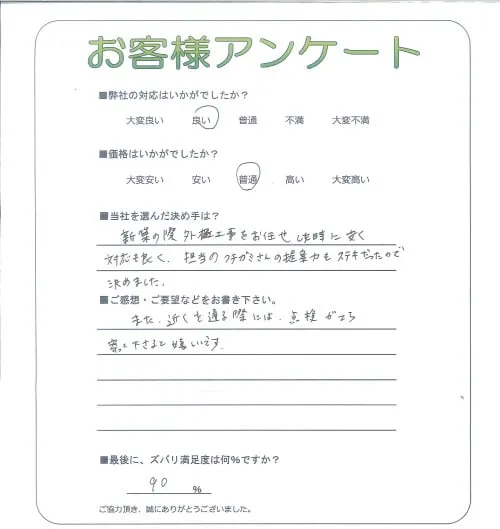 お客様アンケート
■弊社の対応はいかがでしたか？
大変良い 良い 普通 不満 大変不満
■価格はいかがでしたか？
大変安い 安い 普通 高い 大変高い
■当社を選んだ決め手は？
新築の際外構工事をお任せした時に安く
対応も良く、担当のフチガミさんの提案力もステキだったので
決めました。
■ご感想・ご要望などをお書き下さい。
また、近くを通る際には、点検がてら
寄って下さると嬉しいです。
■最後に、ズバリ満足度は何%ですか？
90 %
ご協力頂き、誠にありがとうございました。